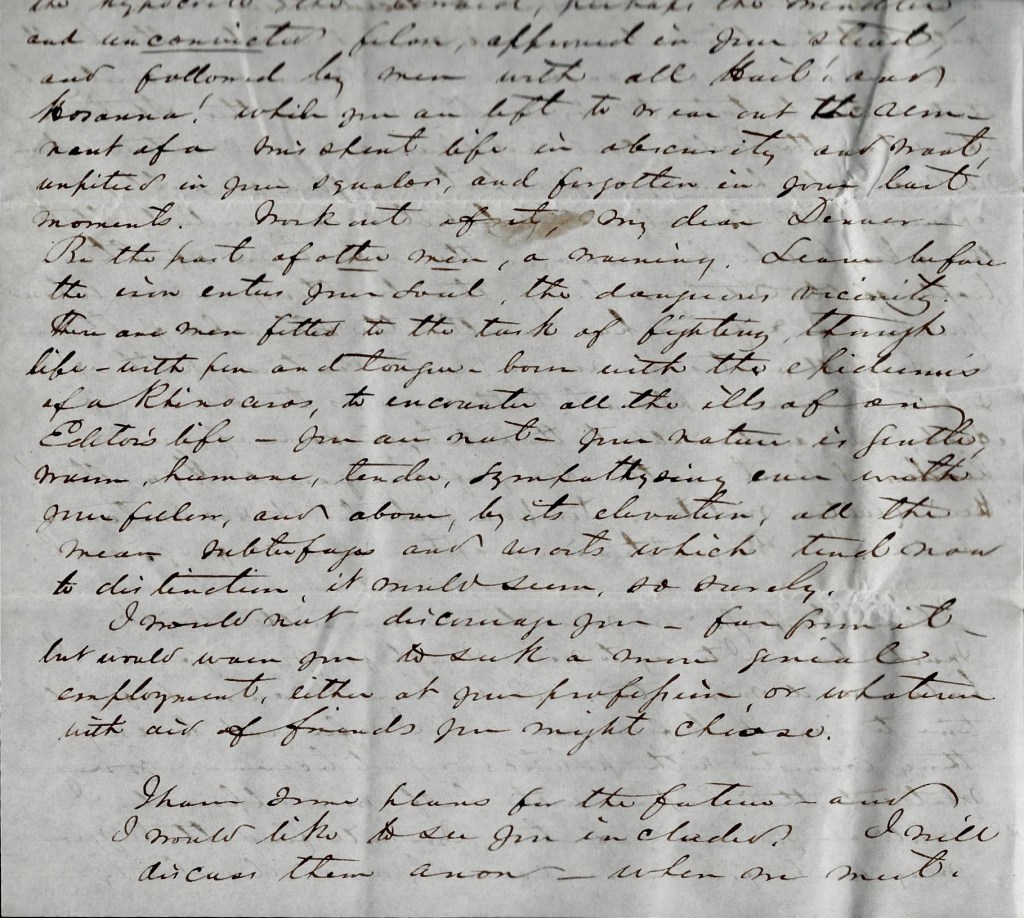 the hypocrite, the coward, perhaps the
and unconvicted felon, approved in your stead,
and followed by men with all Hail! and
Hosanna! while you are left to wear out the rem-
nant of a misspent life in obscurity and want,
unpitied in your squalor, and forgotten in your last
moments. Work out of it, my dear Denver -
Be the past of other men, a warning. Leave before
the iron enters your soul, the dangerous vicinity.
There are men fitted to the task of fighting, through
life - with pen and tongue - born with the epidermis
of a Rhinoceros, to encounter all the ills of an
Editor's life - you are not - your nature is gentle,
warm, humane, tender, sympathysing even with
your felon, and above, by its elevation, all the
mean subterfuges and which tend now
to distinction, it would seem, so surely.
I would not discourage you - far from it -
but would warn you to seek a more genial
employment, either at your profession or whatever
with aid of friends you might choose.
I have some plans for the future - and
I would like to see you included. I will
discuss them anon - when we meet.